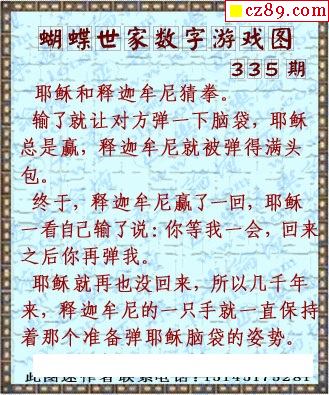 cz89.com
蝴蝶世家数字游戏图
335 期
耶稣和释迦牟尼猜拳。
输了就让对方弹一下脑袋,耶稣
总是赢,释迦牟尼就被弹得满头
包。
终于,释迦牟尼赢了一回,耶稣
一看自己输了说:你等我一会,回来
之后你再弹我。
耶稣就再也没回来,所以几千年
来,释迦牟尼的一只手就一直保持
着那个准备弹耶稣脑袋的姿势。